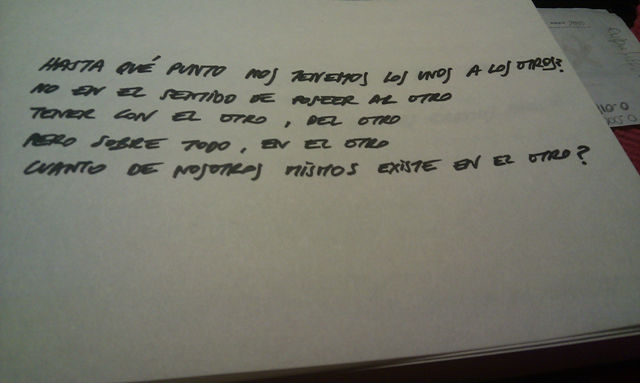 HASTA QUÉ PUNTO NOS TENEMOS LOS UNOS A LOS OTROS?
NO EN EL SENTIDO DE POSEER AL OTRO
TENER CON EL OTRO, DEL OTRO
PERO SOBRE TODO, EN EL OTRO
CUANTO DE NOSOTROS MISMOS EXISTE EN EL OTRO?